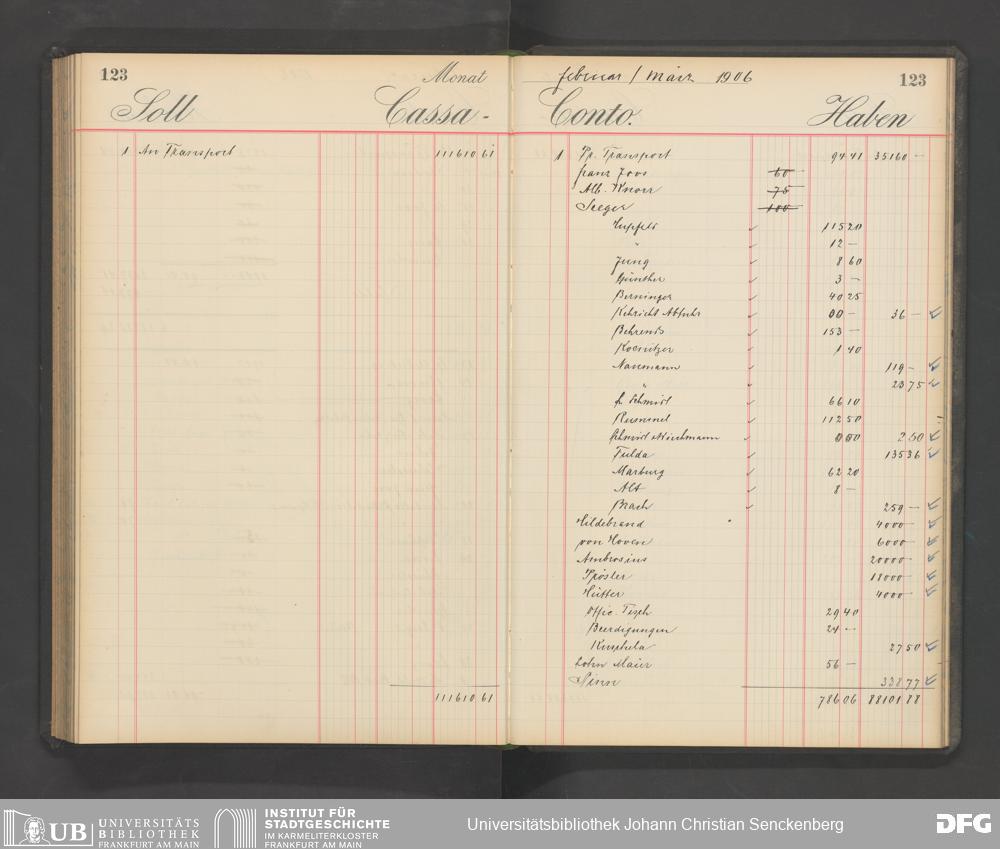 123 Monat
Soll Cassa-
1 An Transport 111610 61
111610 61
Februar / März 1906 123
Conto. Haben
1 Pr. Transport 94 41 35160 —
Franz Joos 60
Alb. Knorr 75
Seeger 100
Hupfeld 115 20
" 12 —
Jung 8 60
Günther 3 —
Berninger 40 25
Kehricht Abfuhr 00 — 36 —
Behrends 153 —
1 40
Naumann 119 —
" 23 75
Fr. Schmidt 66 10
Rummel 112 50
Schmidt 0 00 2 50
Fulda 135 36
Marburg 62 20
Alt 8 —
Brach 259 —
Hildebrand 4000 —
von Hoven 6000 —
Ambrosius 20000 —
Prösler 18000 —
Hütter 4000 —
Offic. Tisch 29 40
Beerdigungen 24 —
27 50
Lohn Maier 56 —
338 77
786 06 88101 88
UB UNIVERSITÄTS
BIBLIOTHEK
FRANKFURT AM MAIN
INSTITUT FÜR
STADTGESCHICHTE
IM KARMELITERKLOSTER
FRANKFURT AM MAIN
Universitätsbibliothek Johann Christian Senckenberg
DFG